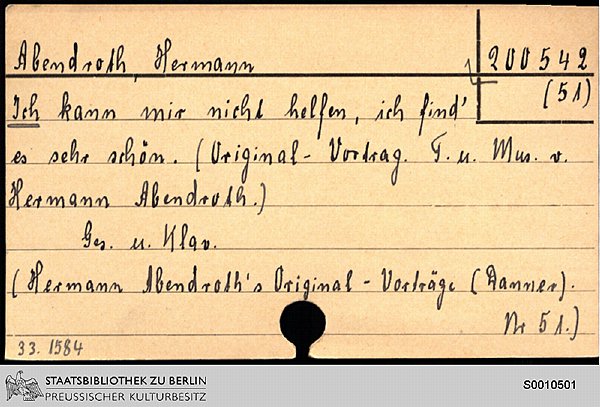 Abendroth, Hermann
200542
(51)
Ich kann mir nicht helfen, ich find'
es sehr schön. (Original-Vortrag. T. u. Mus. v.
Hermann Abendroth.)
Ges. u. Klav.
(Hermann Abendroth's Original-Vorträge (Danner).
Nr 51.)
33. 1584
STAATSBIBLIOTHEK ZU BERLIN
PREUSSISCHER KULTURBESITZ
S0010501